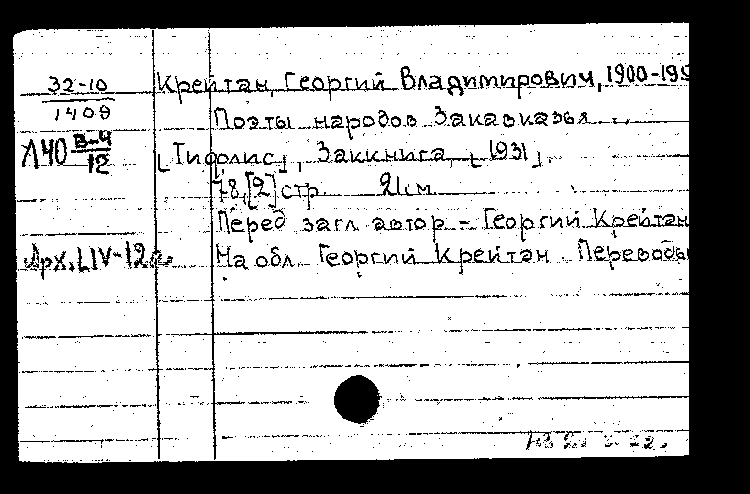 32-10
1409
Крейтан, Георгий Владимирович, 1900-195
Поэты народов Закавказья ...
Л40 В-4
12
[Тифлис], Заккнига, [1931].
78,[2] стр. 21 см.
Перед загл. автор - Георгий Крейтан
Арх. LIV-12а.
На обл. Георгий Крейтан. Переводы